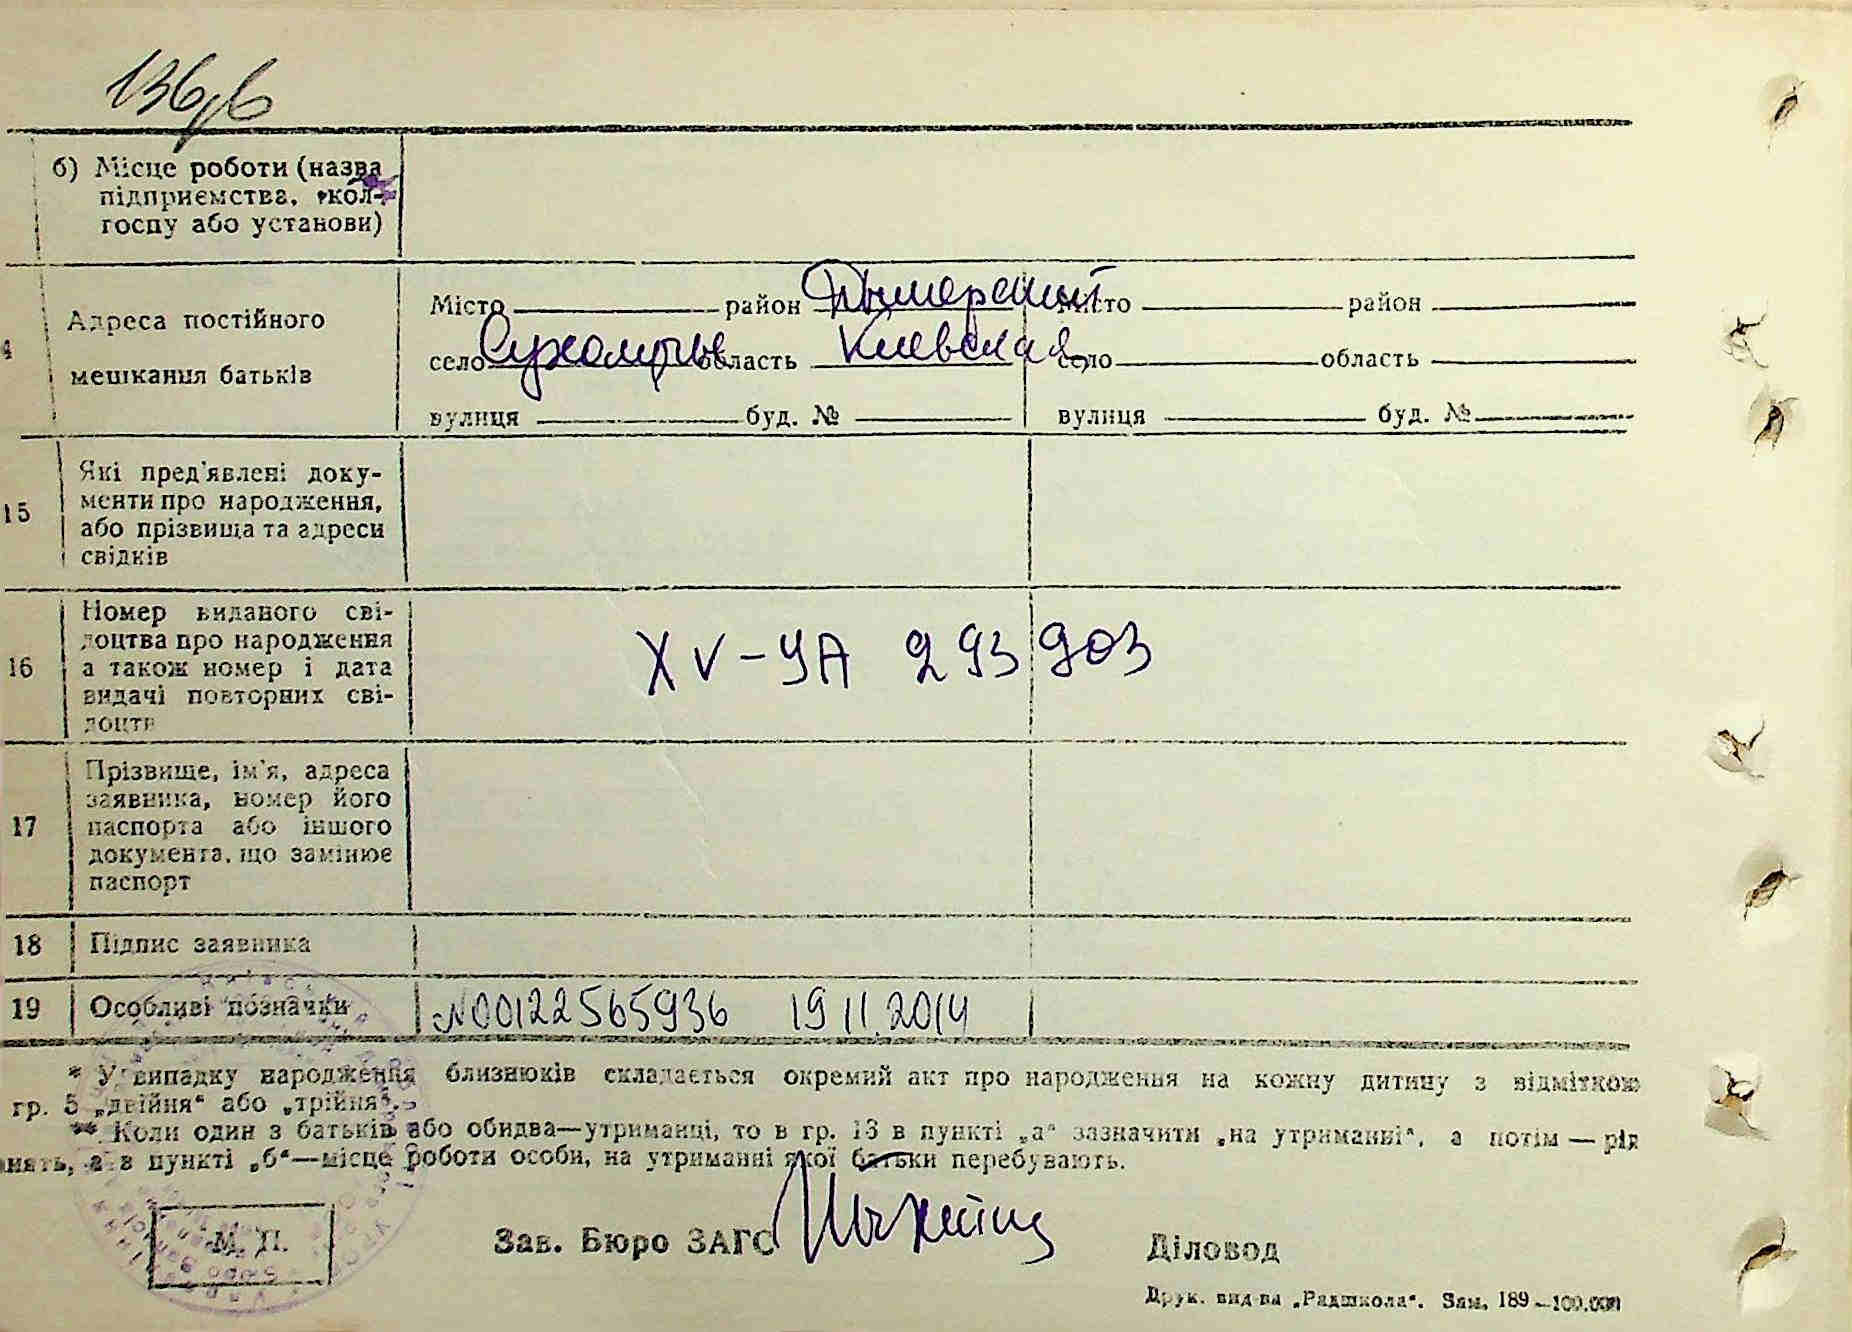 136/6
б) Місце роботи (назва
підприємства, кол-
госпу або установи)
4
Адреса постійного
мешкання батьків
Місто район Дымерский Місто район
село Сухолучье область Киевская село область
вулиця буд. № вулиця буд. №
15
Які пред'явлені доку-
менти про народження,
або прізвища та адреси
свідків
16
Номер виданого сві-
доцтва про народження
а також номер і дата
видачі повторних сві-
доцтв
XV-УА 293903
17
Прізвище, ім'я, адреса
заявника, номер його
паспорта або іншого
документа, що замінює
паспорт
18 Підпис заявника
19 Особливі позначки №00122565936 19 11.2014
* У випадку народження близнюків складається окремий акт про народження на кожну дитину з відміткою
гр. 5 „двійня“ або „трійня“.
** Коли один з батьків або обидва—утриманці, то в гр. 13 в пункті „а“ зазначити „на утриманні“, а потім — рід
нять, а в пункті „б“—місце роботи особи, на утриманні якої батьки перебувають.
М. П.
Зав. Бюро ЗАГС
Діловод
Друк. вид-ва „Радшкола“. Зам. 189—100.000